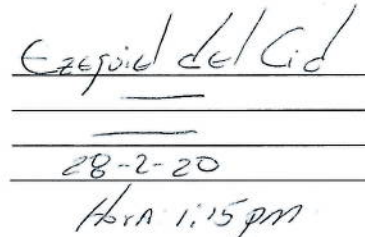 Ezequiel del Cid
—
—
28-2-20
Hora 1:15 pm